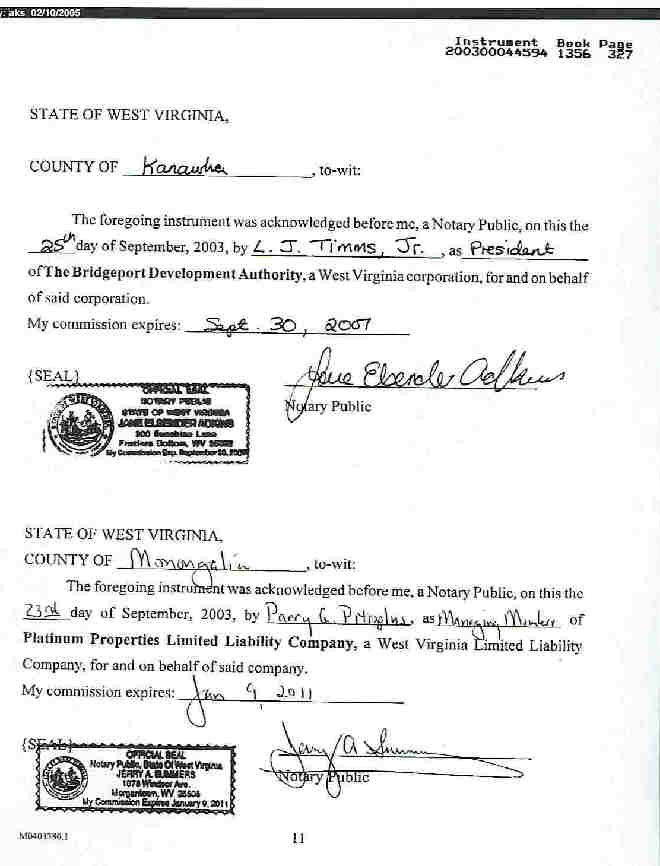 y: aks 02/10/2005
Instrument Book Page
200300044594 1356 327
STATE OF WEST VIRGINIA,
COUNTY OF Kanawha, to-wit:
The foregoing instrument was acknowledged before me, a Notary Public, on this the
25th day of September, 2003, by L. J. Timms, Jr., as President
of The Bridgeport Development Authority, a West Virginia corporation, for and on behalf
of said corporation.
My commission expires: Sept. 30, 2007
{SEAL}
Notary Public
OFFICIAL SEAL
NOTARY PUBLIC
STATE OF WEST VIRGINIA
JANE ELSENDER ADKINS
200 Sunshine Lane
WV
My Commission Exp. September 30,
STATE OF WEST VIRGINIA,
COUNTY OF Monongalia, to-wit:
The foregoing instrument was acknowledged before me, a Notary Public, on this the
23rd day of September, 2003, by Parry G. , as Managing Member of
Platinum Properties Limited Liability Company, a West Virginia Limited Liability
Company, for and on behalf of said company.
My commission expires: Jan 9, 2011
{SEAL}
Notary Public
OFFICIAL SEAL
Notary Public, State Of West Virginia
JERRY A. SUMMERS
1078 Windsor Ave.
Morgantown, WV 26505
My Commission Expires January 9, 2011
M0403786.1
11